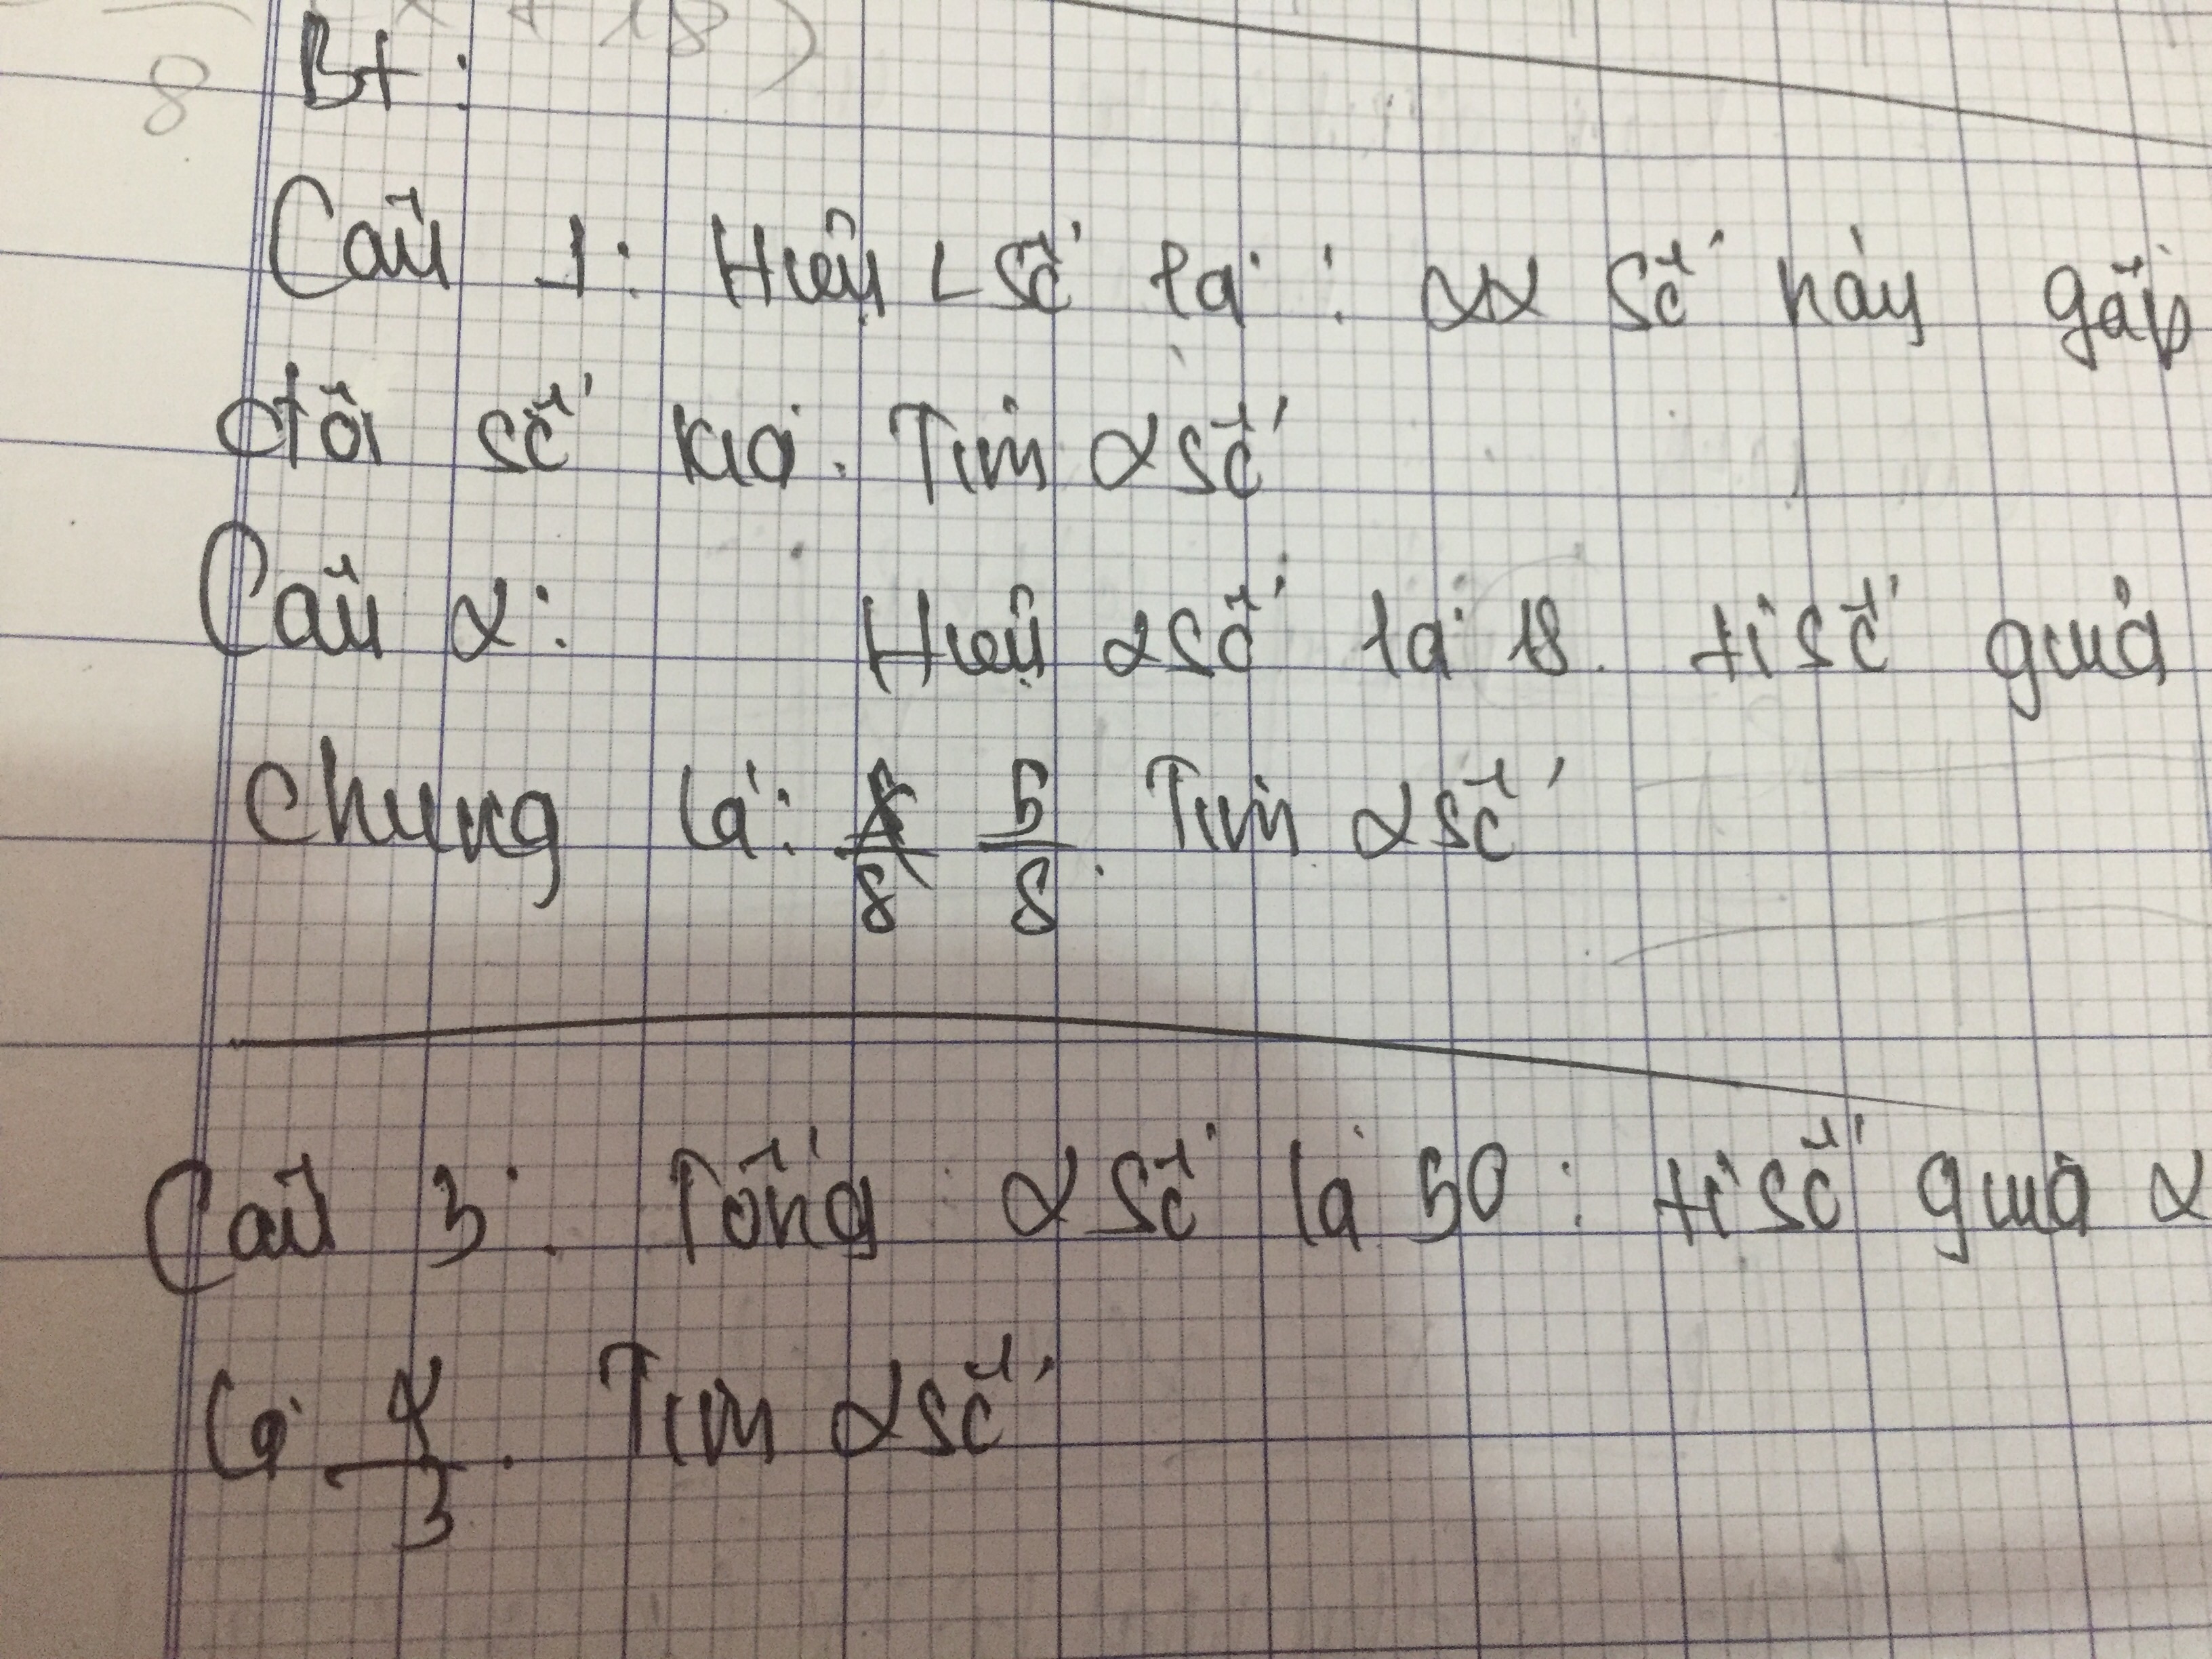 8 x + 18)
Bt:
Câu 1: Hiệu 2 số là: 22 số này gấp
đôi số kia. Tìm 2 số
Câu 2: Hiệu 2 số là 18. tỉ số giữa
chúng là: 5/8. Tìm 2 số
Câu 3: Tổng 2 số là 50: tỉ số giữa 2
là 2/3. Tìm 2 số